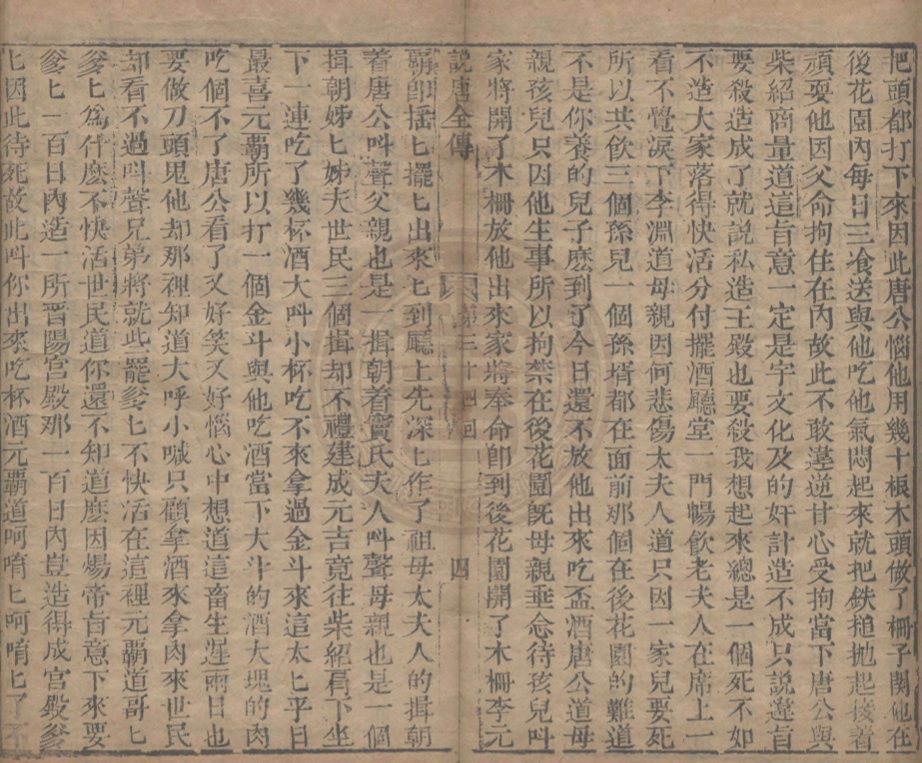 把頭都打下來因此唐公惱他用幾十根木頭做了柵子関他在
後花園內每日三飡送與他吃他氣悶起來就把鉄搥抛起接着
頑耍他因父命拘住在內故此不敢違逆甘心受拘當下唐公與
柴紹商量道這旨意一定是宇文化及的奸計造不成只說違旨
要殺造成了就說私造王殿也要殺我想起來總是一個死不如
不造大家落得快活分付擺酒廳堂一門暢飲老夫人在席上一
看不覺淚下李淵道母親因何悲傷太夫人道只因一家兒要死
所以共飲三個孫兒一個孫壻都在面前那個在後花園的難道
不是你養的兒子麽到了今日還不放他出來吃盃酒唐公道母
親孩兒只因他生事所以拘禁在後花園旣母親垂念待孩兒叫
家將開了木柵放他出來家將奉命卽到後花園開了木柵李元
說唐全傳 第三十四回 四
霸卽搖匕擺匕出來匕到廳上先深匕作了祖母太夫人的揖朝
着唐公叫聲父親也是一揖朝着竇氏夫人叫聲母親也是一個
揖朝姊匕姊夫世民三個揖却不禮建成元吉竟往柴紹肩下坐
下一連吃了幾杯酒大呌小杯吃不來拿過金斗來這太匕平日
最喜元霸所以打一個金斗與他吃酒當下大斗的酒大塊的肉
吃個不了唐公看了又好笑又好惱心中想道這畜生涯兩日也
要做刀頭鬼他却那裡知道大呼小喊只顧拿酒來拿肉來世民
却看不過叫聲兄弟將就此罷爹匕不快活在這裡元霸道哥匕
爹匕爲什麽不快活世民道你還不知道麽因煬帝旨意下來要
爹匕一百日內造一所晋陽宮殿那一百日內豈造得成宮殿爹
匕因此待死故此叫你出來吃杯酒元霸道呵唷匕呵唷匕了不